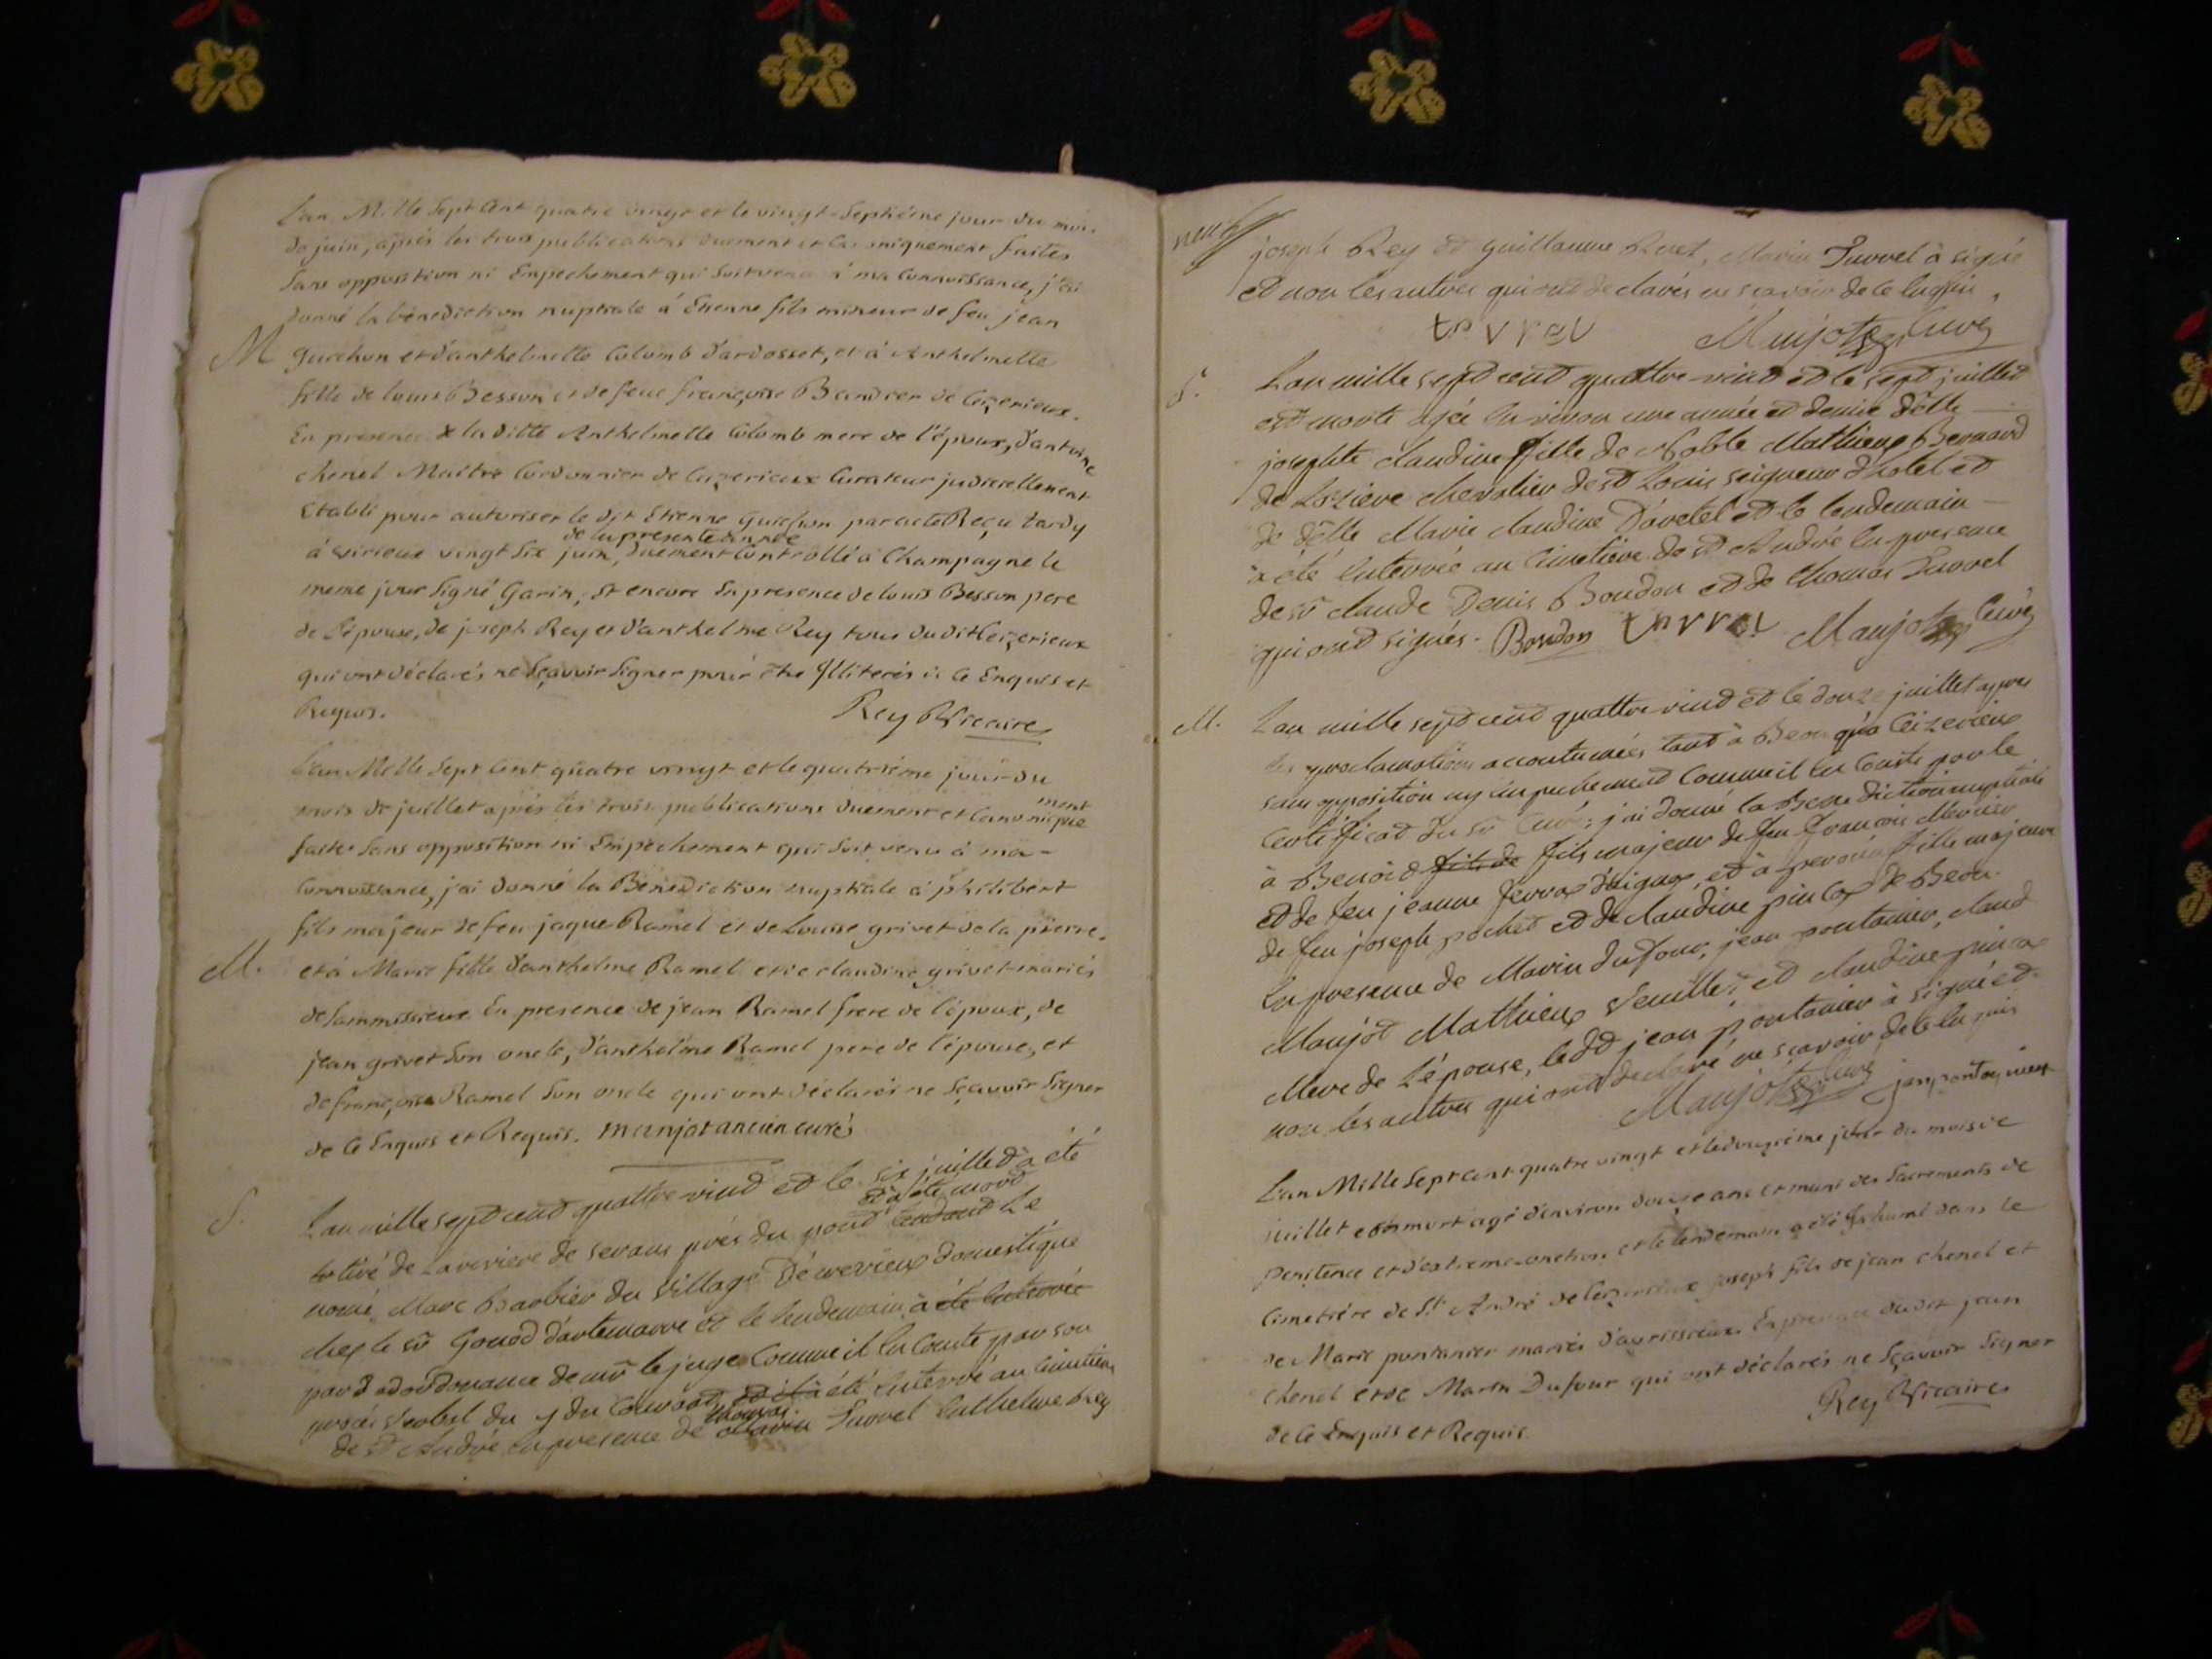 L'an Mille Sept Cent quatre vingt et le vingt-Septiéme jour du mois
de juin, après les trois publications duement et canoniquement faites
Sans opposition ni Empechement qui Soit venu à ma Connoissance, j'ai
donné la bénédiction nuptiale à Etienne fils mineur de feu jean
M
guichon et d'anthelmette Colomb d'ardosset, et à Anthelmette
fille de louis Besson et de feue françoise Bandier de Ceizerieux.
En présence de la ditte Anthelmette Colomb mere de l'époux, d'antoine
chenel Maître Cordonnier de Ceizerieux Curateur judiciellement
Etabli pour autoriser le dit Etienne Guichon par acte Reçu tardy
de la presente année
à virieux vingt Six juin, duement Controllé à Champagne le
meme jour Signé Garin; et encore En presence de louis Besson pere
de l'épouse, de joseph Rey et d'anthelme Rey tous du dit Ceizerieux
qui ont déclarés ne Sçavoir Signer pour être Illiterés de ce Enquis et
Requis. Rey Vicaire
L'an Mille Sept Cent quatre vingt et le quatriéme jour du
mois de juillet après les trois publications duement et canonique
ment
faite Sans opposition ni Empêchement qui Soit venu à ma
Connoissance, j'ai donné la Bénédiction nuptiale à philibert
fils majeur de feu jaque Ramel et de Louise grivet de la pierre.
M. et à Marie fille d'anthelme Ramel et de claudine grivet mariés
de Sammissieux En presence de jean Ramel frere de l'époux, de
jean grivet Son oncle, d'anthelme Ramel pere de l'épouse, et
de françois Ramel Son oncle qui ont déclarés ne Sçavoir Signer
de Ce Enquis et Requis. manjot ancien curé
S. L'an mille sept cent quattre vint et le six juillet a été
et a été mort
tiré de la riviere de serans près du pont Le
nomé Marc barbier du Village décrevieux domestique
chez le sr Gonod d'artemarre et le lendemain a été enterrée
par d ordonnance de mr le juge Comme il en Conste par son
procès Verbal du 7 du Courant a été enterré au Cimetiere
thomas
de St André en presence de Marin Turrel enthelme Rey
neuf
joseph Rey et guillaume Ruet, Marin Turrel à signé
et non les autres qui ont declarés ne scavoir de ce enquis.
turrel Manjot Curé
S. L'an mille sept cent quattre-vint et le sept juillet
est morte agée environ une année et demie délle
josephte claudine fille de Noble Mathieux Bernard
de Loziere chevalier de st Louis seigneur d'hotel et
de délle Marie claudine D'avetel et le lendemain
a eté enterrée au Cimetiere de st André en presence
de sr claude Denis Bondon et de thomas Turrel
qui ont signés. Bondon turrel Manjot Curé
M. L'an mille sept cent quattre-vint et le douze juillet apres
les proclamations accoutumées tant à Beon qu'a Ceizerieux
sans opposition ny empechement Comme il en Conste par le
Certificat du sr Curé; j'ai donné la Benediction nuptiale
à Benoid fils de fils majeur de feu françois Mercier
et de feu jeanne ferrax d'Aignox, et à peronne fille majeure
de feu joseph pochet et de claudine pinlox de Beon.
En presence de Marin dufour, jean pontanier, claud
Manjot Mathieux Veuillet et claudine pinlox
Mere de L'épouse, ledt jean pontanier à signé et
non les autres qui ont declaré ne sçavoir de ce enquis
Manjot Curé jean pontannier
L'an Mille Sept cent quatre vingt et le douzieme jour du mois de
juillet est mort agé d'environ douze ans et muni des Sacrements de
Penitence et d'extreme-onction, et le lendemain a été Inhumé dans le
Cimetiére de St. André de Ceizerieux joseph fils de jean chenel et
de Marie pontanier mariés d'avrissieux En presence dudit jean
chenel et de Marin Dufour qui ont déclarés ne Sçavoir Signer
de Ce Enquis et Requis. Rey Vicaire